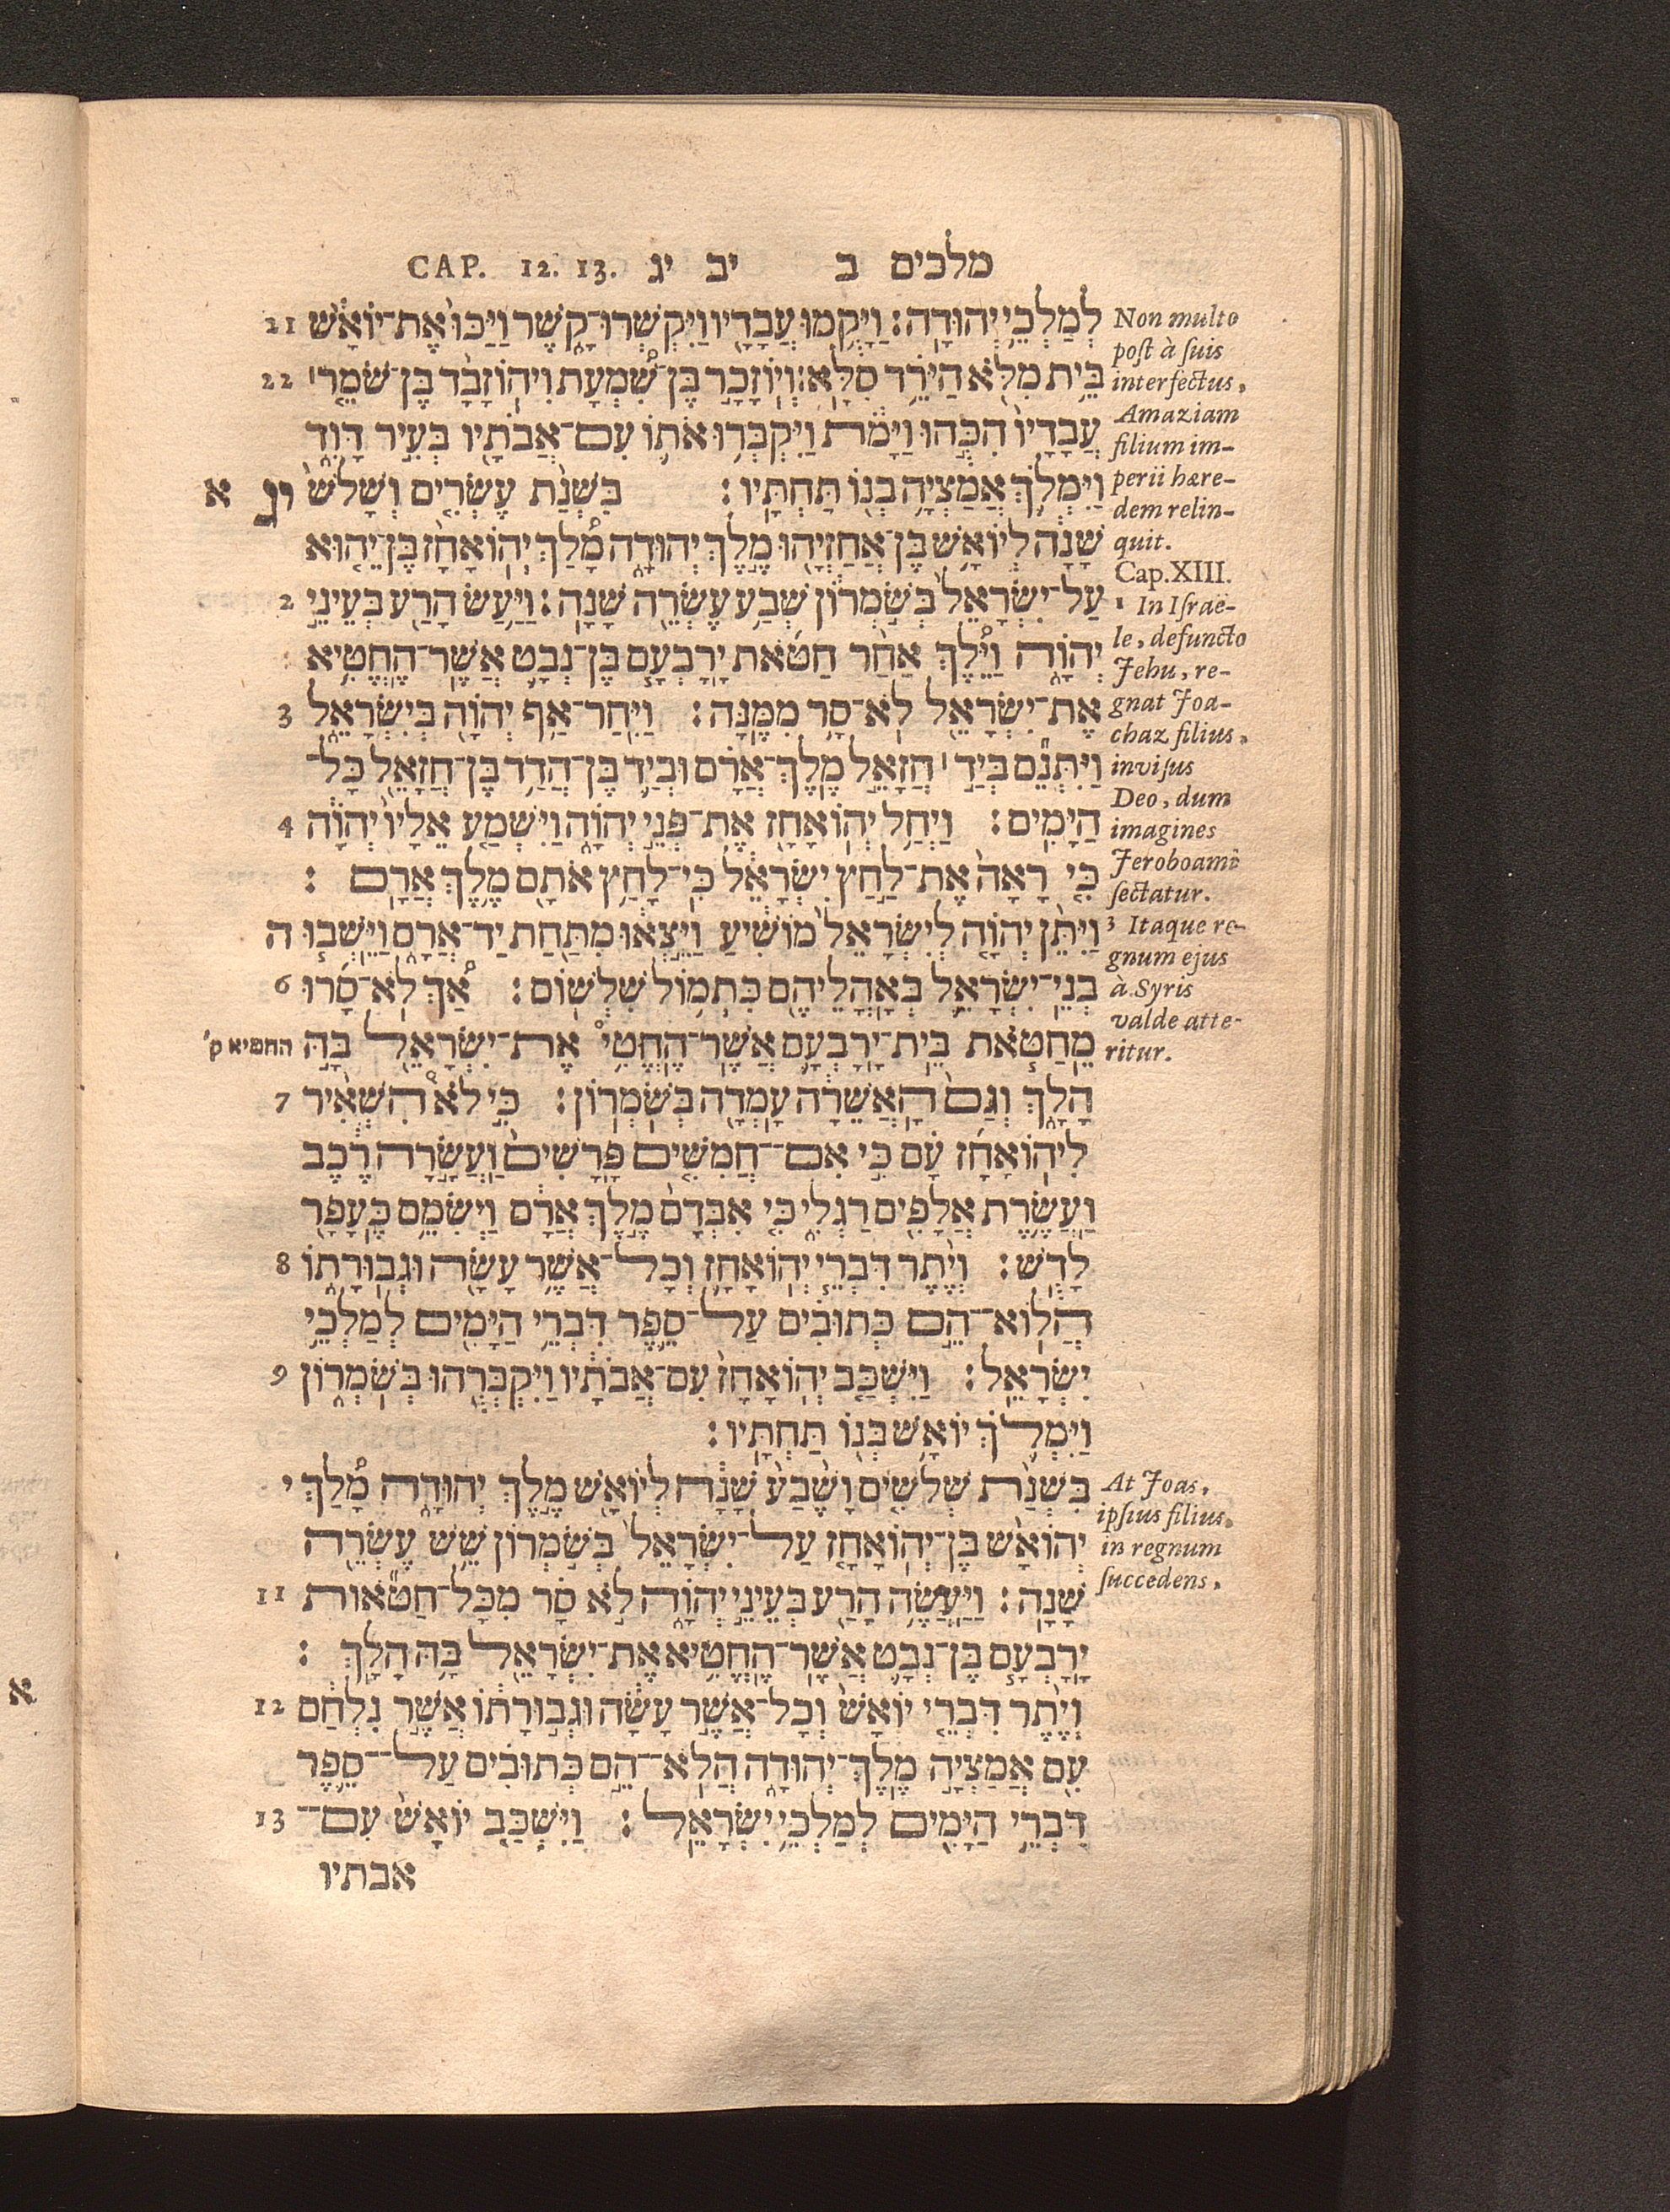 מלכים ב יב יג CAP. 12. 13.
לְמַלְכֵי יְהוּדָה׃ וַיָּקֻמוּ עֲבָדָיו וַיִּקְשְׁרוּ־קָשֶׁר וַיַּכּוּ אֶת־יוֹאָשׁ 21
בֵּית מִלֹּא הַיֹּרֵד סִלָּא׃ וְיוֹזָכָר בֶּן־שִׁמְעָת וִיהוֹזָבָד בֶּן־שֹׁמֵר׀ 22
עֲבָדָיו הִכֻּהוּ וַיָּמֹת וַיִּקְבְּרוּ אֹתוֹ עִם־אֲבֹתָיו בְּעִיר דָּוִד
וַיִּמְלֹךְ אֲמַצְיָה בְנוֹ תַּחְתָּיו׃ בִּשְׁנַת עֶשְׂרִים וְשָׁלֹשׁ יג א
שָׁנָה לְיוֹאָשׁ בֶּן־אֲחַזְיָהוּ מֶלֶךְ יְהוּדָה מָלַךְ יְהוֹאָחָז בֶּן־יֵהוּא
עַל־יִשְׂרָאֵל בְּשֹׁמְרוֹן שְׁבַע עֶשְׂרֵה שָׁנָה׃ וַיַּעַשׂ הָרַע בְּעֵינֵי 2
יְהוָה וַיֵּלֶךְ אַחַר חַטֹּאת יָרָבְעָם בֶּן־נְבָט אֲשֶׁר־הֶחֱטִיא
אֶת־יִשְׂרָאֵל לֹא־סָר מִמֶּנָּה׃ וַיִּחַר־אַף יְהוָה בְּיִשְׂרָאֵל 3
וַיִּתְּנֵם בְּיַד׀ חֲזָאֵל מֶלֶךְ־אֲרָם וּבְיַד בֶּן־הֲדַד בֶּן־חֲזָאֵל כָּל־
הַיָּמִים׃ וַיְחַל יְהוֹאָחָז אֶת־פְּנֵי יְהוָה וַיִּשְׁמַע אֵלָיו יְהוָה 4
כִּי רָאָה אֶת־לַחַץ יִשְׂרָאֵל כִּי־לָחַץ אֹתָם מֶלֶךְ אֲרָם׃
וַיִּתֵּן יְהוָה לְיִשְׂרָאֵל מוֹשִׁיעַ וַיֵּצְאוּ מִתַּחַת יַד־אֲרָם וַיֵּשְׁבוּ ה
בְנֵי־יִשְׂרָאֵל בְּאָהֳלֵיהֶם כִּתְמוֹל שִׁלְשׁוֹם׃ אַךְ לֹא־סָרוּ 6
מֵחַטֹּאת בֵּית־יָרָבְעָם אֲשֶׁר־הֶחֱטִי אֶת־יִשְׂרָאֵל בָּהּ החטיא ק'
הָלָךְ וְגַם הָאֲשֵׁרָה עָמְדָה בְּשֹׁמְרוֹן׃ כִּי לֹא הִשְׁאִיר 7
לִיהוֹאָחָז עָם כִּי אִם־חֲמִשִּׁים פָּרָשִׁים וַעֲשָׂרָה רֶכֶב
וַעֲשֶׂרֶת אֲלָפִים רַגְלִי כִּי אִבְּדָם מֶלֶךְ אֲרָם וַיְשִׂמֵם כֶּעָפָר
לָדֻשׁ׃ וְיֶתֶר דִּבְרֵי יְהוֹאָחָז וְכָל־אֲשֶׁר עָשָׂה וּגְבוּרָתוֹ 8
הֲלוֹא־הֵם כְּתוּבִים עַל־סֵפֶר דִּבְרֵי הַיָּמִים לְמַלְכֵי
יִשְׂרָאֵל׃ וַיִּשְׁכַּב יְהוֹאָחָז עִם־אֲבֹתָיו וַיִּקְבְּרֻהוּ בְּשֹׁמְרוֹן 9
וַיִּמְלֹךְ יוֹאָשׁ בְּנוֹ תַּחְתָּיו׃
בִּשְׁנַת שְׁלֹשִׁים וָשֶׁבַע שָׁנָה לְיוֹאָשׁ מֶלֶךְ יְהוּדָה מָלַךְ י
יְהוֹאָשׁ בֶּן־יְהוֹאָחָז עַל־יִשְׂרָאֵל בְּשֹׁמְרוֹן שֵׁשׁ עֶשְׂרֵה
שָׁנָה׃ וַיַּעֲשֶׂה הָרַע בְּעֵינֵי יְהוָה לֹא סָר מִכָּל־חַטֹּאות 11
יָרָבְעָם בֶּן־נְבָט אֲשֶׁר־הֶחֱטִיא אֶת־יִשְׂרָאֵל בָּהּ הָלָךְ׃
וְיֶתֶר דִּבְרֵי יוֹאָשׁ וְכָל־אֲשֶׁר עָשָׂה וּגְבוּרָתוֹ אֲשֶׁר נִלְחַם 12
עִם אֲמַצְיָה מֶלֶךְ־יְהוּדָה הֲלֹא־הֵם כְּתוּבִים עַל־סֵפֶר
דִּבְרֵי הַיָּמִים לְמַלְכֵי יִשְׂרָאֵל׃ וַיִּשְׁכַּב יוֹאָשׁ עִם־ 13
אבתיו
Non multo
post à suis
interfectus,
Amaziam
filium im-
perii hære-
dem relin-
quit.
Cap.XIII.
1 In Israë-
le, defuncto
Jehu, re-
gnat Joa-
chaz filius,
invisus
Deo, dum
imagines
Jeroboami
sectatur.
3 Itaque re-
gnum ejus
à Syris
valde atte-
ritur.
At Joas,
ipsius filius,
in regnum
succedens,
א